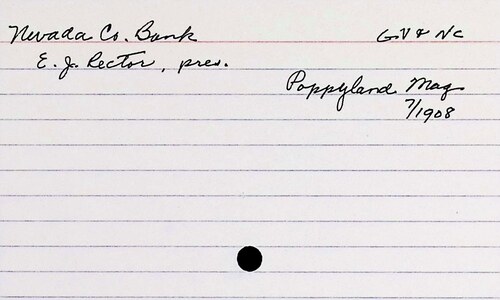 Nevada Co. Bank
G.V & NC
E. J. Rector, pres.
Poppyland Mag.
7/1908